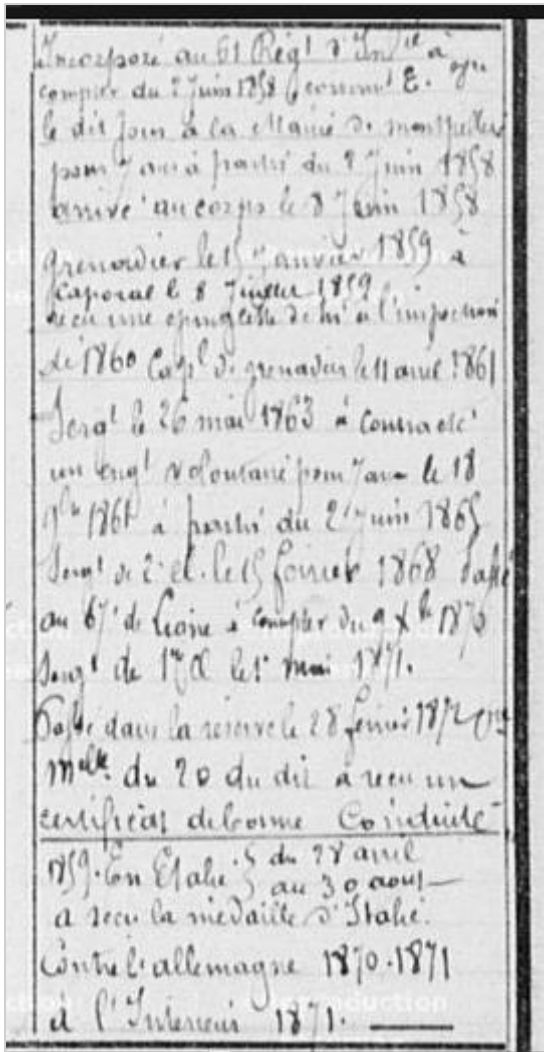 Incorporé au 61 Régt d'Infie à
compter du 2 Juin 1858 comme E.
le dit jour à la Mairie de montpellier
pour 7 ans à partir du 2 Juin 1858
arrivé au corps le 8 Juin 1858
grenadier le 15 Janvier 1859 à
Caporal le 8 Juillet 1859
recu une epinglette de hr à l'inspection
de 1860 Capl de grenadiers le 11 avril 1861
Sergt le 26 mai 1863 à contracté
un engt volontaire pour 7 ans le 18
à partir du 2 Juin 1865
Sergt de 2e cl. le 15 fevrier 1868 Passé
au 67e de Ligne à compter du 9 Xbre 1870
Sergt de 1re Cl le 1er mai 1871.
Passé dans la réserve le 28 fevrier 1872
Melle du 20 du dit à recu un
certificat de bonne Conduite
1859. En Italie du 28 avril
au 30 aout
a recu la médaille d'Italie.
Contre l'allemagne 1870-1871
à l'Interieur 1871.